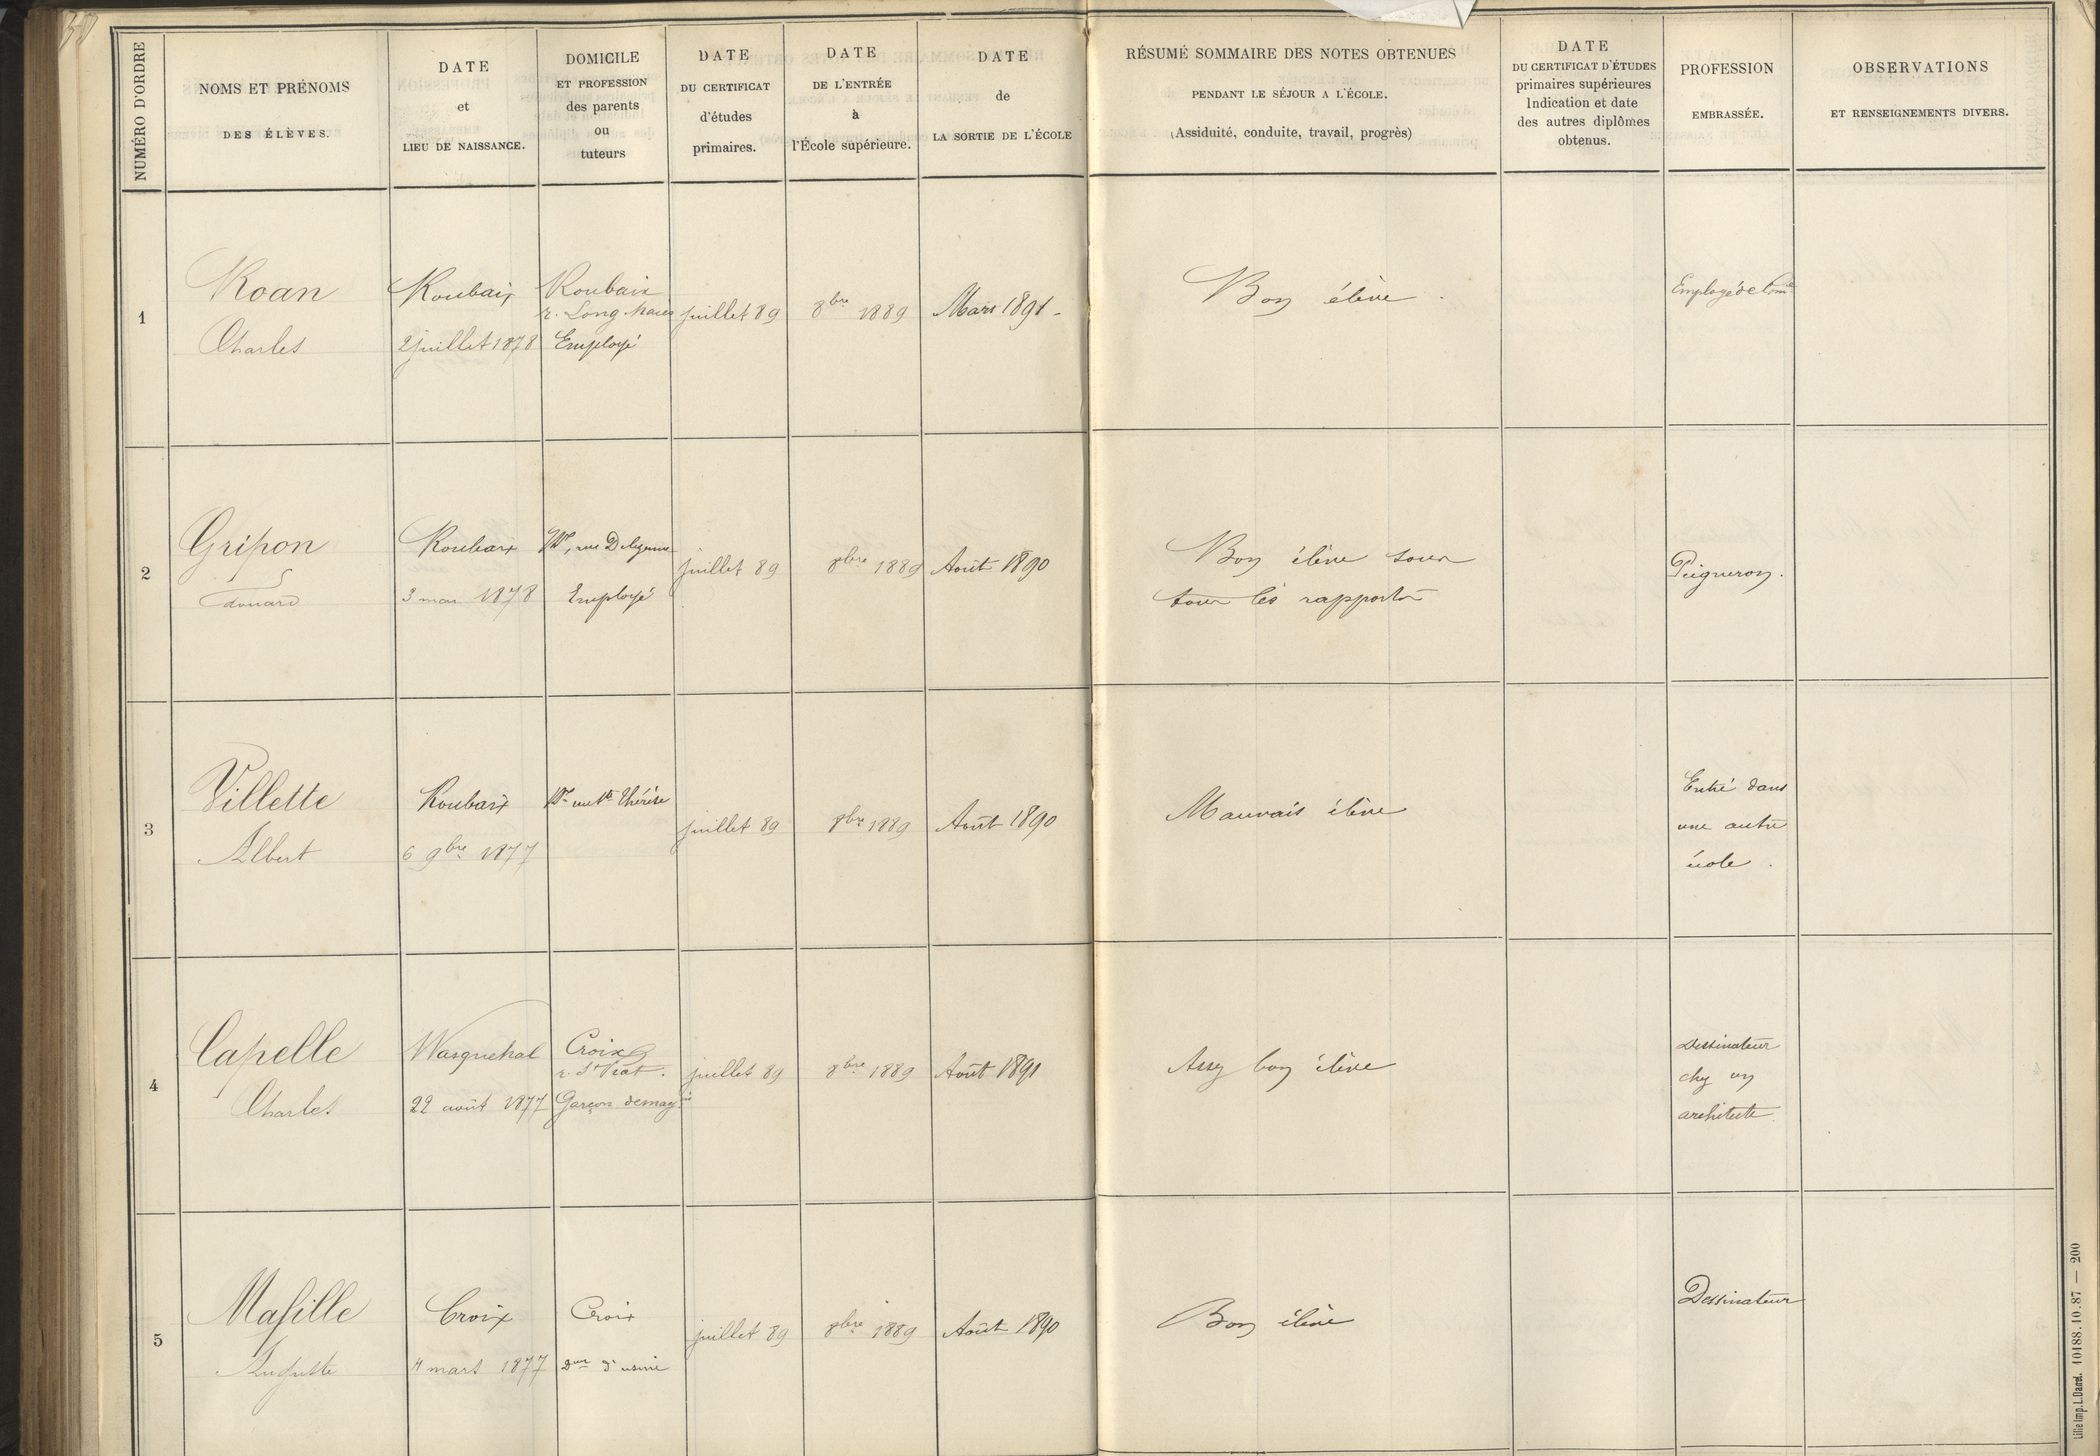 NUMÉRO D'ORDRE
NOMS ET PRÉNOMS
DES ÉLÈVES.
DATE
et
LIEU DE NAISSANCE.
DOMICILE
ET PROFESSION
des parents
ou
tuteurs
DATE
DU CERTIFICAT
d'études
primaires.
DATE
DE L'ENTRÉE
à
l'École supérieure.
DATE
de
LA SORTIE DE L'ÉCOLE
RÉSUMÉ SOMMAIRE DES NOTES OBTENUES
PENDANT LE SÉJOUR A L'ÉCOLE.
(Assiduité, conduite, travail, progrès)
DATE
DU CERTIFICAT D'ÉTUDES
primaires supérieures
Indication et date
des autres diplômes
obtenus.
PROFESSION
EMBRASSÉE.
OBSERVATIONS
ET RENSEIGNEMENTS DIVERS.
1
Roan
Charles
Roubaix
2 juillet 1878
Roubaix
r. Long
Employé
juillet 89
8bre 1889
Mars 1891
Bon élève.
Employé de
2
Gripon
Edouard
Roubaix
3 mai 1878
rue
Employé
juillet 89
8bre 1889
Août 1890
Bon élève sous
tous les rapports
Peigneron.
3
Villette
Albert
Roubaix
6 9bre 1877
rue Ste Thérèse
juillet 89
8bre 1889
Août 1890
Mauvais élève
Entré dans
une autre
école.
4
Capelle
Charles
Wasquehal
22 août 1877
Croix
r. St Piat.
Garçon de mag
juillet 89
8bre 1889
Août 1891
Assez bon élève
Dessinateur
chez un
architecte
5
Masille
Auguste
Croix
4 mars 1877
Croix
d'usine
juillet 89
8bre 1889
Août 1890
Bon élève
Dessinateur
Lille Imp. L. Danel. 10188.10.87 — 200